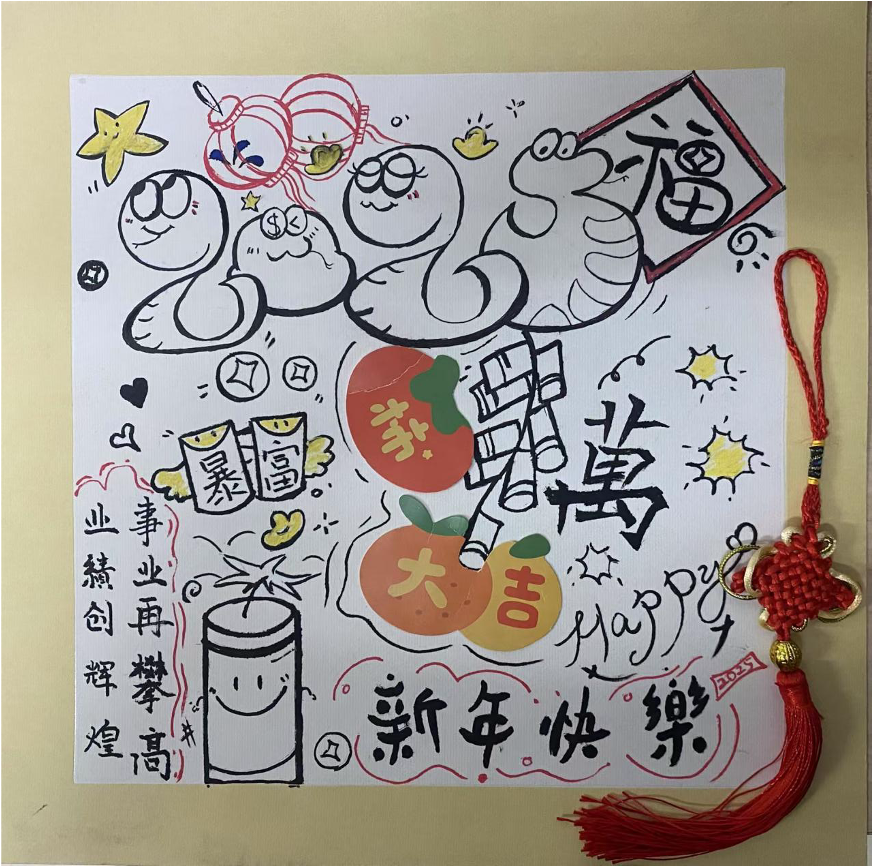 福
$
暴富
萬
大吉
事业再攀高
业績创辉煌
Happy
新年快樂
2025